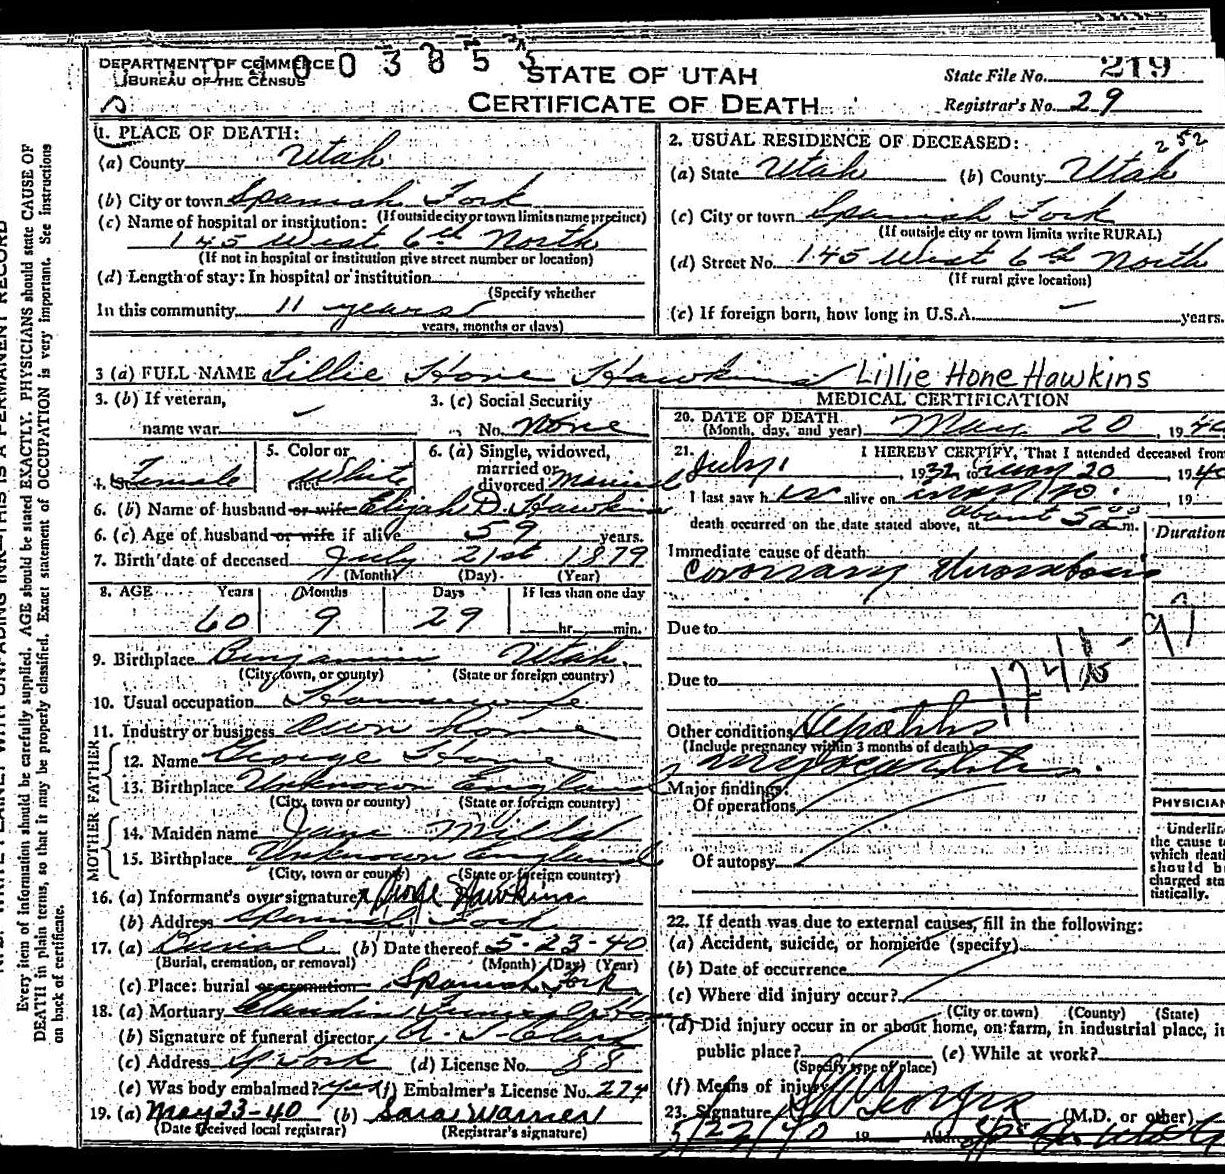 003853
DEPARTMENT OF COMMERCE
BUREAU OF THE CENSUS
STATE OF UTAH
CERTIFICATE OF DEATH
State File No. 219
Registrar's No. 29
1. PLACE OF DEATH:
(a) County Utah
(b) City or town Spanish Fork
(If outside city or town limits name precinct)
(c) Name of hospital or institution:
145 West 6th North
(If not in hospital or institution give street number or location)
(d) Length of stay: In hospital or institution
(Specify whether
In this community 11 years
years, months or days)
2. USUAL RESIDENCE OF DECEASED: 252
(a) State Utah (b) County Utah
(c) City or town Spanish Fork
(If outside city or town limits write RURAL)
(d) Street No. 145 West 6th North
(If rural give location)
(e) If foreign born, how long in U.S.A. years.
3 (a) FULL NAME Lillie Hone Hawkins Lillie Hone Hawkins
3. (b) If veteran,
name war
3. (c) Social Security
No. None
4. Sex Female
5. Color or
race White
6. (a) Single, widowed,
married or
divorced Married
6. (b) Name of husband or wife Elijah D. Hawkins
6. (c) Age of husband or wife if alive 59 years.
7. Birth date of deceased July 21st 1879
(Month) (Day) (Year)
8. AGE Years Months Days If less than one day
60 9 29 hr. min.
9. Birthplace Benjamin Utah
(City, town, or county) (State or foreign country)
10. Usual occupation Housewife
11. Industry or business Own home
FATHER
12. Name George Hone
13. Birthplace Unknown England
(City, town or county) (State or foreign country)
MOTHER
14. Maiden name Jane
15. Birthplace Unknown England
(City, town or county) (State or foreign country)
16. (a) Informant's own signature x George Hawkins
(b) Address Spanish Fork
17. (a) Burial (b) Date thereof 5-23-40
(Burial, cremation, or removal) (Month) (Day) (Year)
(c) Place: burial or cremation Spanish Fork
18. (a) Mortuary Claudin
(b) Signature of funeral director
(c) Address Sp Fork (d) License No. 88
(e) Was body embalmed? yes (f) Embalmer's License No. 274
19. (a) May 23-40 (b) Sara Warner
(Date received local registrar) (Registrar's signature)
MEDICAL CERTIFICATION
20. DATE OF DEATH May 20, 1940
(Month, day, and year)
21. I HEREBY CERTIFY, That I attended deceased from
July 1 1932 to May 20 1940
I last saw her alive on May 20. 19
death occurred on the date stated above, at about 5 a m.
Duration
Immediate cause of death
Coronary thrombosis
Due to
Due to
Other conditions
(Include pregnancy within 3 months of death)
myocarditis.
Major findings:
Of operations
Of autopsy
PHYSICIAN
Underline
the cause to
which death
should be
charged sta-
tistically.
22. If death was due to external causes, fill in the following:
(a) Accident, suicide, or homicide (specify)
(b) Date of occurrence
(c) Where did injury occur?
(City or town) (County) (State)
(d) Did injury occur in or about home, on farm, in industrial place, in
public place? (e) While at work?
(Specify type of place)
(f) Means of injury
23. Signature (M.D. or other)
5/22/40 19 Address
Every item of information should be carefully supplied. AGE should be stated EXACTLY. PHYSICIANS should state CAUSE OF
DEATH in plain terms, so that it may be properly classified. Exact statement of OCCUPATION is very important. See instructions
on back of certificate.